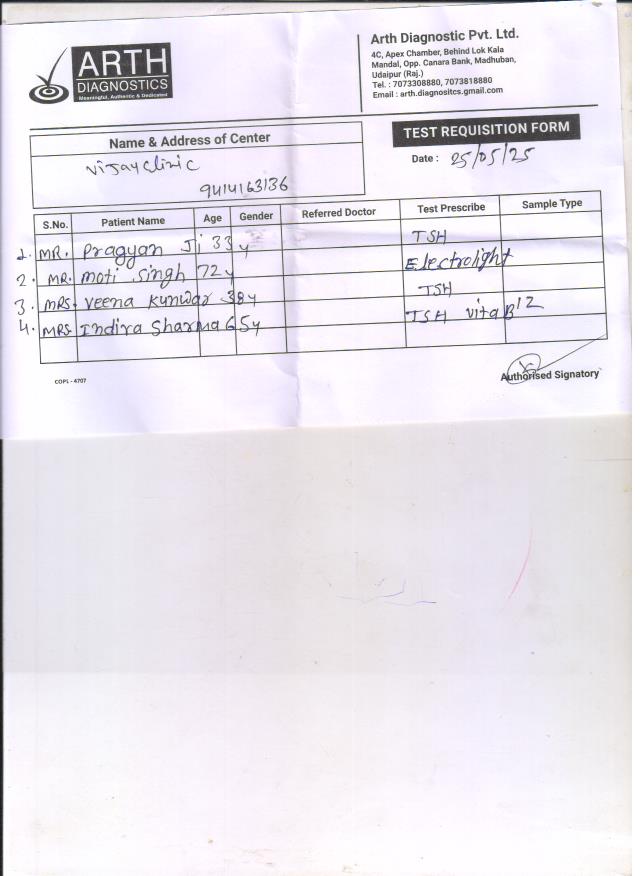 ARTH
DIAGNOSTICS
Meaningful, Authentic & Dedicated
Arth Diagnostic Pvt. Ltd.
4C, Apex Chamber, Behind Lok Kala
Mandal, Opp. Canara Bank, Madhuban,
Udaipur (Raj.)
Tel. : 7073308880, 7073818880
Email : arth.diagnositcs.gmail.com
Name & Address of Center
TEST REQUISITION FORM
Vijay Clinic
9414163136
Date : 25/05/25
S.No. Patient Name Age Gender Referred Doctor Test Prescribe Sample Type
1. MR. Pragyan Ji 33 y TSH
2. MR. Moti Singh 72 y Electrolight
3. MRS. Veena Kunwar 38y TSH
4. MRS. Indira Sharma 65y TSH Vita B12
Authorised Signatory
COPL - 4707